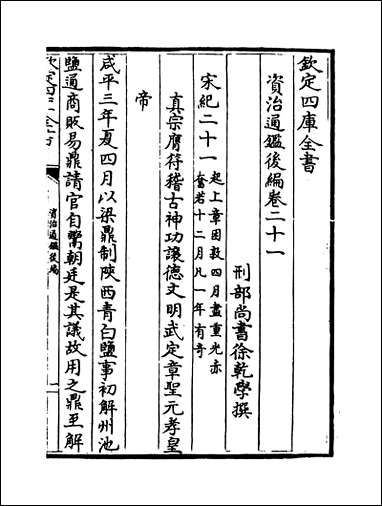 欽定四庫全書
資治通鑑後編卷二十一
刑部尚書徐乾學撰
宋紀二十一
起上章困敦四月盡重光赤
奮若十二月凡一年有奇
真宗膺符稽古神功讓德文明武定章聖元孝皇
帝
咸平三年夏四月以梁鼎制陝西青白鹽事初解州池
鹽通商販易鼎請官自鬻朝廷是其議故用之鼎至解
欽定四庫全書
資治通鑑後編
一